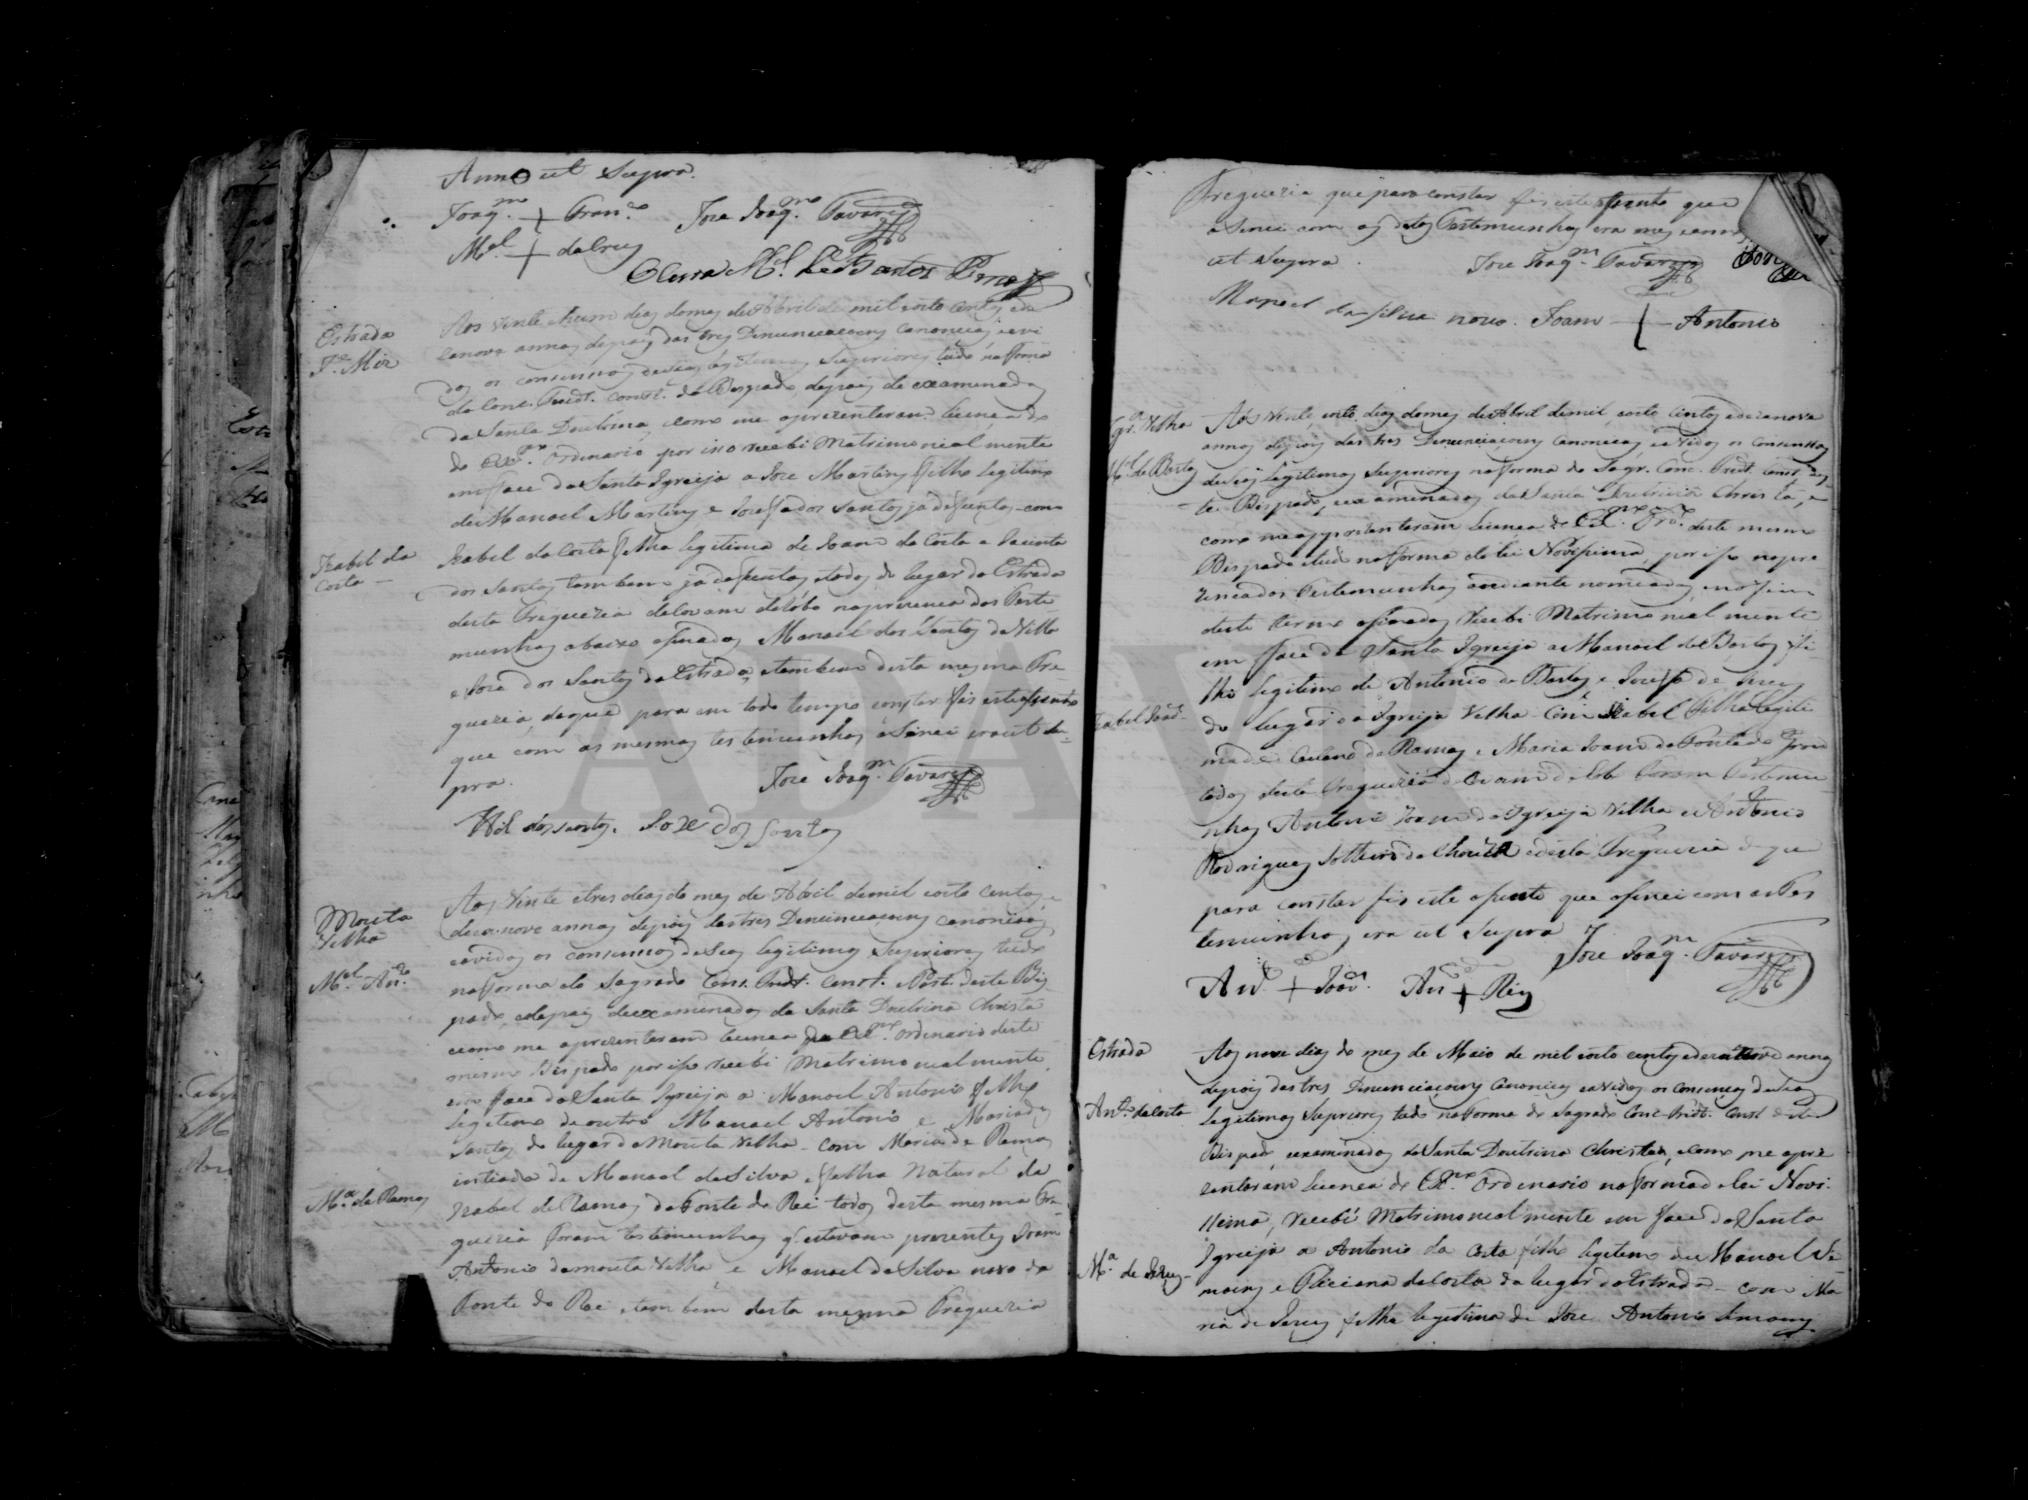 Anno ut Supra.
Joaq.m + Fran.co Joze Joaq.m Tavares
M.el + da Cruz
O Cura M.el de Bastos Pinto
Estrada
J.e Miz
Aos vinte e hum dias do mes de Abril de mil oito centos e de
zanove annos depois das tres Denunciacoens Canonicas e ouvi
dos os consensos de seos legitimos Superiores tudo na forma
do Conc. Trid. Const. do Bispado, depois de examinados
da Santa Doutrina, e como me aprezentaram licença do
Ex.mo Ordinario por isso recebi Matrimonialmente
em face da Santa Igreija a Joze Martins filho legitimo
de Manoel Martins e Josefa dos Santos ja defuntos com
Izabel da
Costa
Izabel da Costa filha legitima de Joam da Costa e Jacinta
dos Santos tambem ja defuntos todos do lugar da Estrada
desta Freguezia de Lovam de Lobo na prezença das Teste
munhas abaixo asinadas Manoel dos Santos da Villa
e Joze dos Santos da Estrada, e tambem desta mesma Fre
guezia, do que para em todo tempo constar fis este asento
que com as mesmas testemunhas asinei era ut Su
pra.
Joze Joaq.m Tavares
M.el dos Santos. Joze dos Santos
Mouta
Velha
M.el An.to
Aos vinte e tres dias do mes de Abril de mil e oito centos e
deza nove annos depois das tres Denunciacoens canonicas
e ouvidos os consensos de seos legitimos Superiores tudo
na forma do Sagrado Conc. Trid. Const. deste Bis
pado, e depois de examinados da Santa Doutrina Christã
e como me aprezentaram licença do Ex.mo Ordinario deste
mesmo Bispado por iso recebi Matrimonialmente
em face da Santa Igreija a Manoel Antonio filho
legitimo de outro Manoel Antonio e Maria dos
Santos do lugar da Mouta Velha - com Maria de Ramos
M.a de Ramos
intiada de Manoel da Silva e filha Natural de
Izabel de Ramos da Fonte do Rei todos desta mesma Fre
guezia foram testemunhas q. estavam prezentes Joam
Antonio da mouta Velha, e Manoel da Silva novo da
Fonte do Rei, e tambem desta mesma Freguezia
Freguezia que para constar fis este asento que
asinei com as ditas Testemunhas era mes e anno
ut Supra.
Joze Joaq.m Tavares
Manoel da Silva novo. Joam + Antonio
Igr.a Velha
M.el de Bastos
Aos vinte, oito dias do mes de Abril de mil, oito centos e dezanove
annos depois das tres Denunciacoens Canonicas e ouvidos os Consensos
de seos legitimos Superiores na forma do Sagr. Conc. Trid. Const. des
te Bispado, e examinados da Santa Doutrina Christã, e
como me apprezentaram licença do Ex.mo Or.o deste mesmo
Bispado e tudo na forma da lei Novissima, por iso na pre
zença das Testemunhas ao diante nomeadas, e no fim
deste termo asinadas Recebi Matrimonialmente
em face da Santa Igreija a Manoel de Bastos fi
lho legitimo de Antonio de Bastos e Josefa de Jesus
Izabel Joad.
do lugar da Igreija Velha - Com Izabel filha legiti
ma de Caetano de Ramos e Maria Joam da Fonte do
todos desta Freguezia de Lovam de Lobo foram Testemu
nhas Antonio Joam da Igreija Velha e Antonio
Rodrigues Solteiro da e desta Freguezia de que
para constar fis este asento que asinei com as Tes
temunhas, era ut Supra
Joze Joaq.m Tavares
An.to + Joam. An.to + Roiz
Estrada
An.to da Costa
Aos nove dias do mes de Maio de mil oito centos e dezanove annos
depois das tres Denunciacoens Canonicas e ouvidos os Consensos de seos
legitimos Superiores tudo na forma do Sagrado Conc. Trid. Const. deste
Bispado, e examinados da Santa Doutrina Christan, e como me apre
zentaram licença do Ex.mo Ordinario na forma da lei Novi
ssima, Recebi Matrimonialmente em face da Santa
Igreija a Antonio da Costa filho legitimo de Manoel Si
M.a de Jezus
moens e Feliciana da Costa do lugar da Estrada - com Ma
ria de Jezus filha legitima de Joze Antonio Simoens
ADAVR